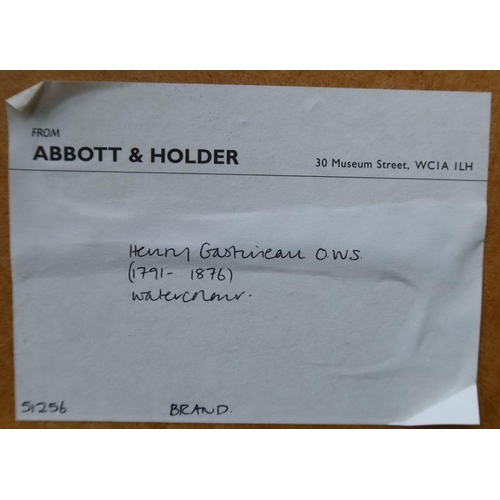 FROM
ABBOTT & HOLDER
30 Museum Street, WC1A 1LH
Henry Gastineau O.W.S.
(1791- 1876)
watercolour.
51256
BRAND.